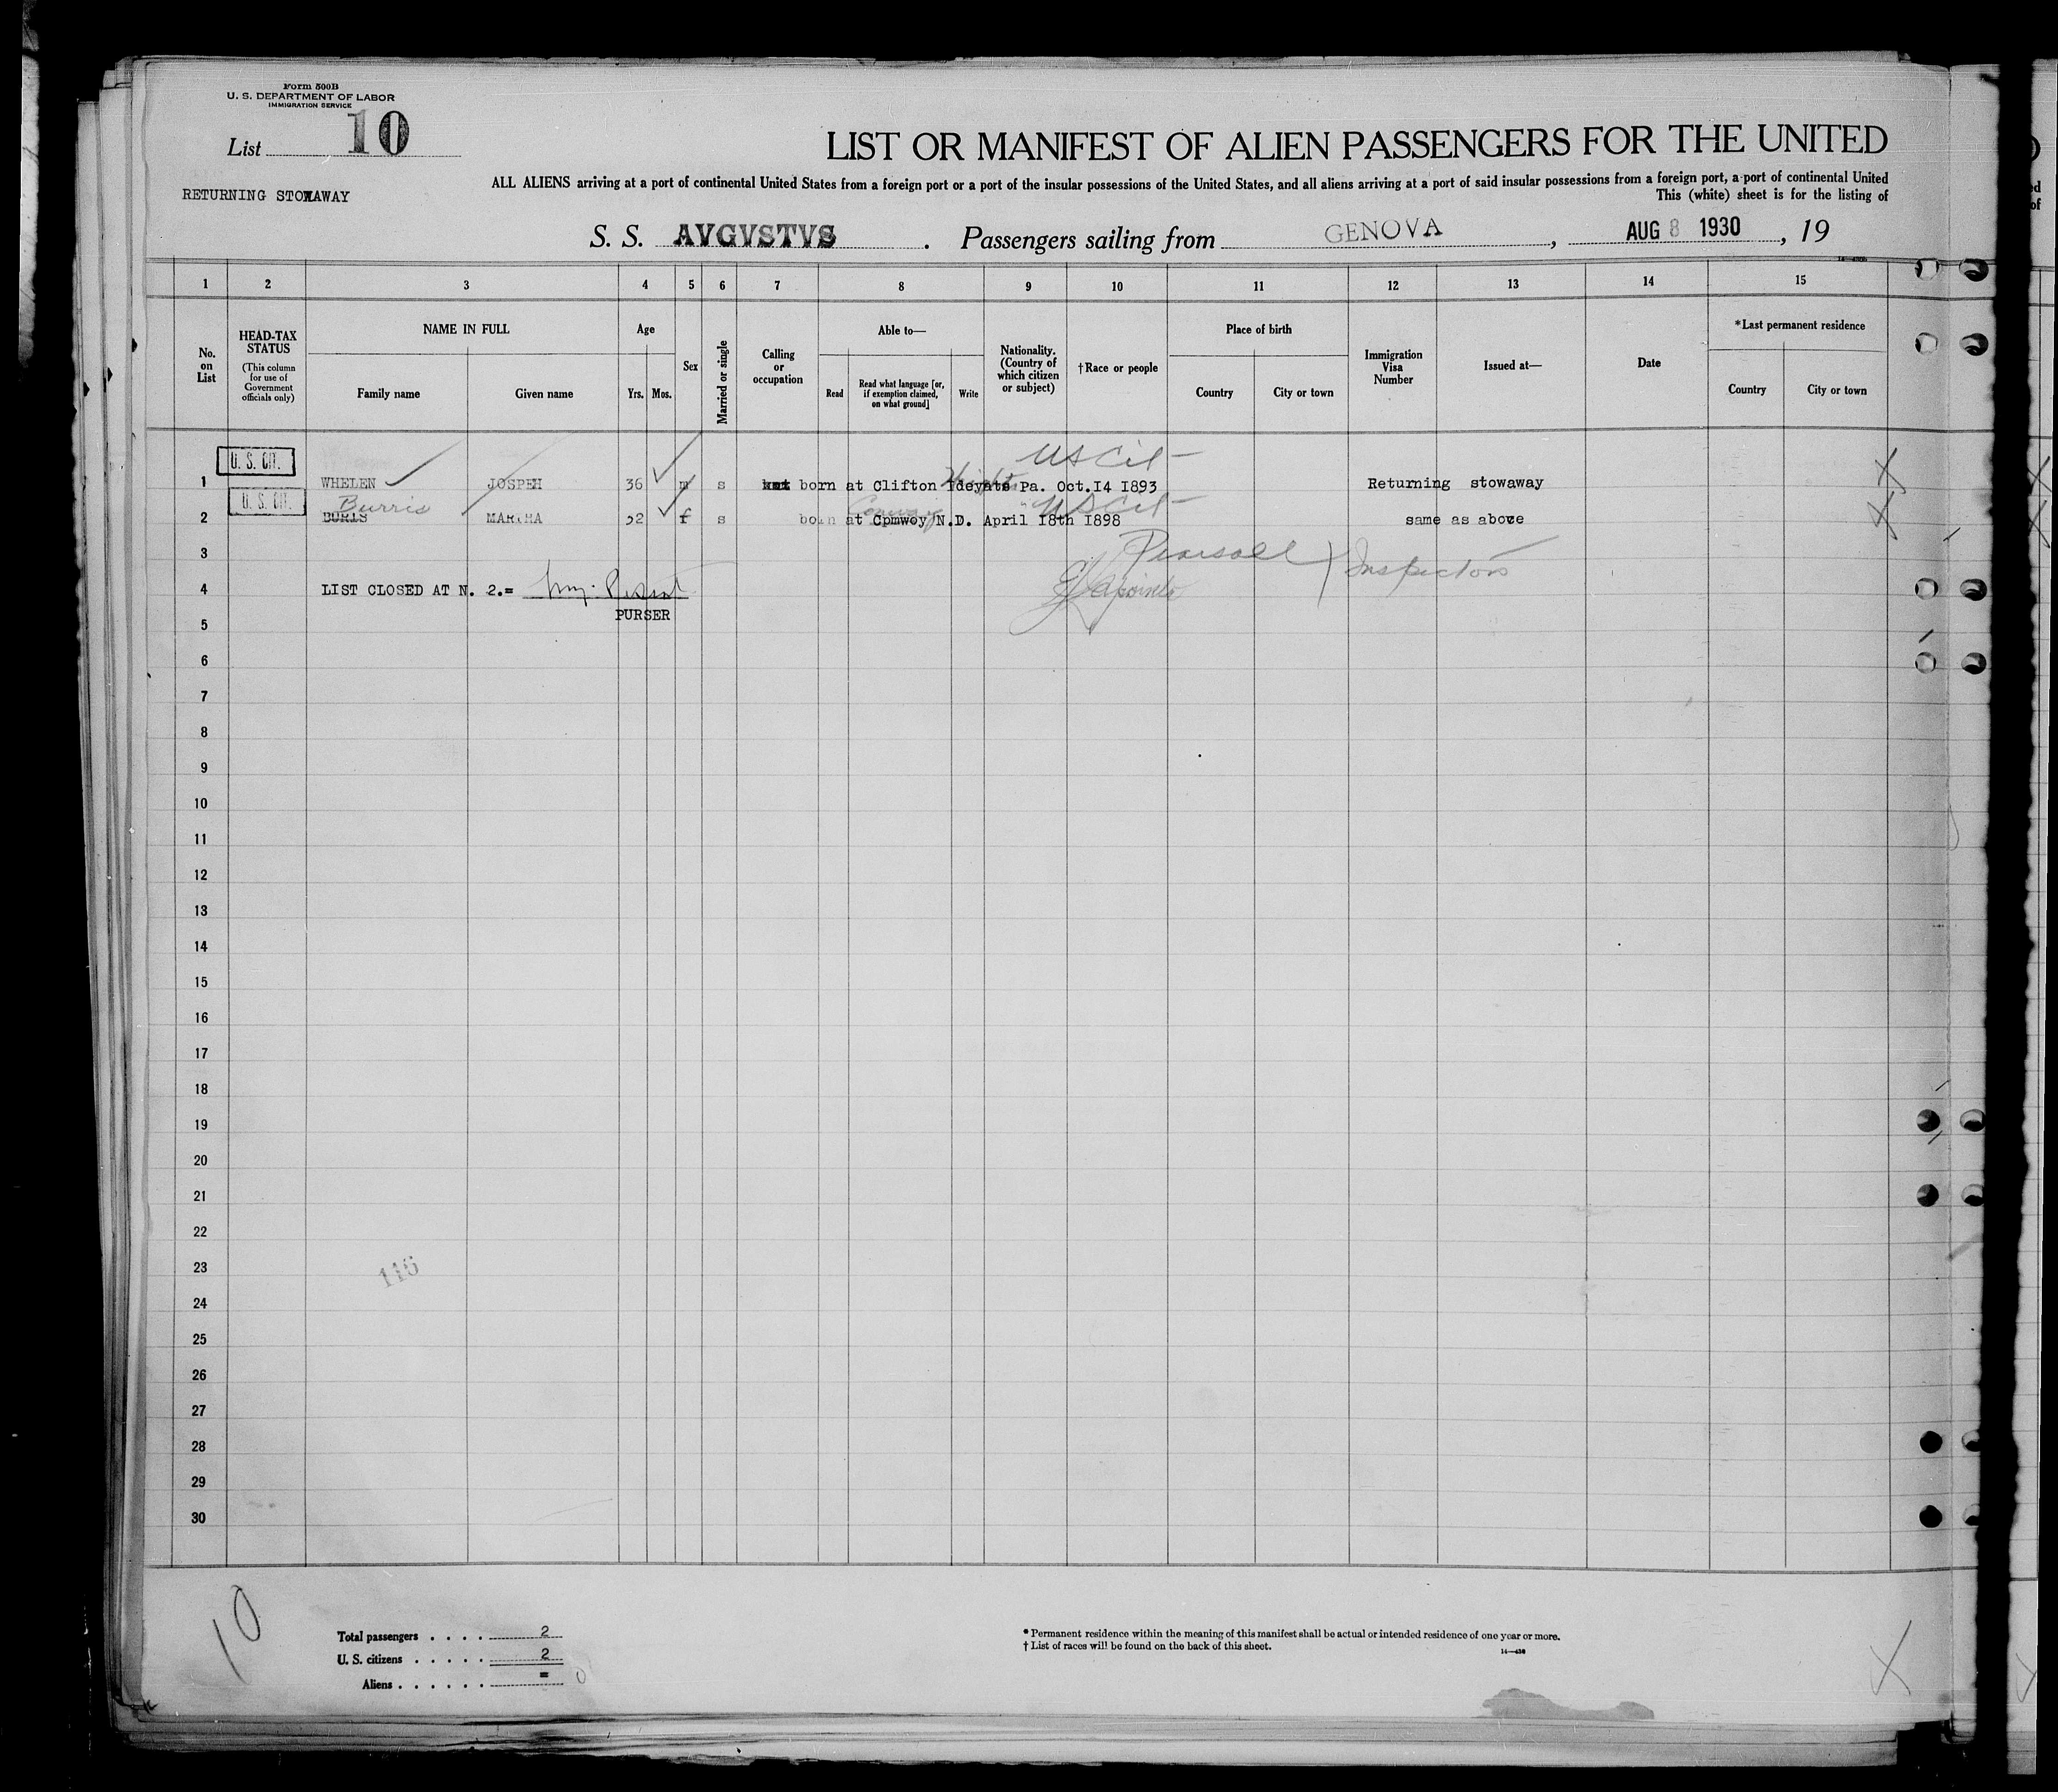 Form 500B
U. S. DEPARTMENT OF LABOR
IMMIGRATION SERVICE
List 10
LIST OR MANIFEST OF ALIEN PASSENGERS FOR THE UNITED
RETURNING STOWAWAY
ALL ALIENS arriving at a port of continental United States from a foreign port or a port of the insular possessions of the United States, and all aliens arriving at a port of said insular possessions from a foreign port, a port of continental United
This (white) sheet is for the listing of
S. S. AVGVSTVS . Passengers sailing from GENOVA , AUG 8 1930 , 19
1 2 3 4 5 6 7 8 9 10 11 12 13 14 15
No. on List
HEAD-TAX STATUS
(This column for use of Government officials only)
NAME IN FULL
Family name
Given name
Age
Yrs.
Mos.
Sex
Married or single
Calling or occupation
Able to—
Read
Read what language [or, if exemption claimed, on what ground]
Write
Nationality. (Country of which citizen or subject)
†Race or people
Place of birth
Country
City or town
Immigration Visa Number
Issued at—
Date
*Last permanent residence
Country
City or town
U. S. CIT.
US Cit-
1 WHELEN JOSPEH 36 m s born at Clifton Pa. Oct.14 1893 Returning stowaway
U. S. CIT.
Burris
Conway
US Cit-
2 BURIS MARTHA 32 f s born at Cpmwoy N.D. April 18th 1898 same as above
3
Pearsall
Lapointe
Inspectors
4 LIST CLOSED AT N. 2.=
PURSER
5
6
7
8
9
10
11
12
13
14
15
16
17
18
19
20
21
22
23
116
24
25
26
27
28
29
30
10
Total passengers . . . . 2
U. S. citizens . . . . . 2
Aliens . . . . . . = 0
* Permanent residence within the meaning of this manifest shall be actual or intended residence of one year or more.
† List of races will be found on the back of this sheet.
14—430